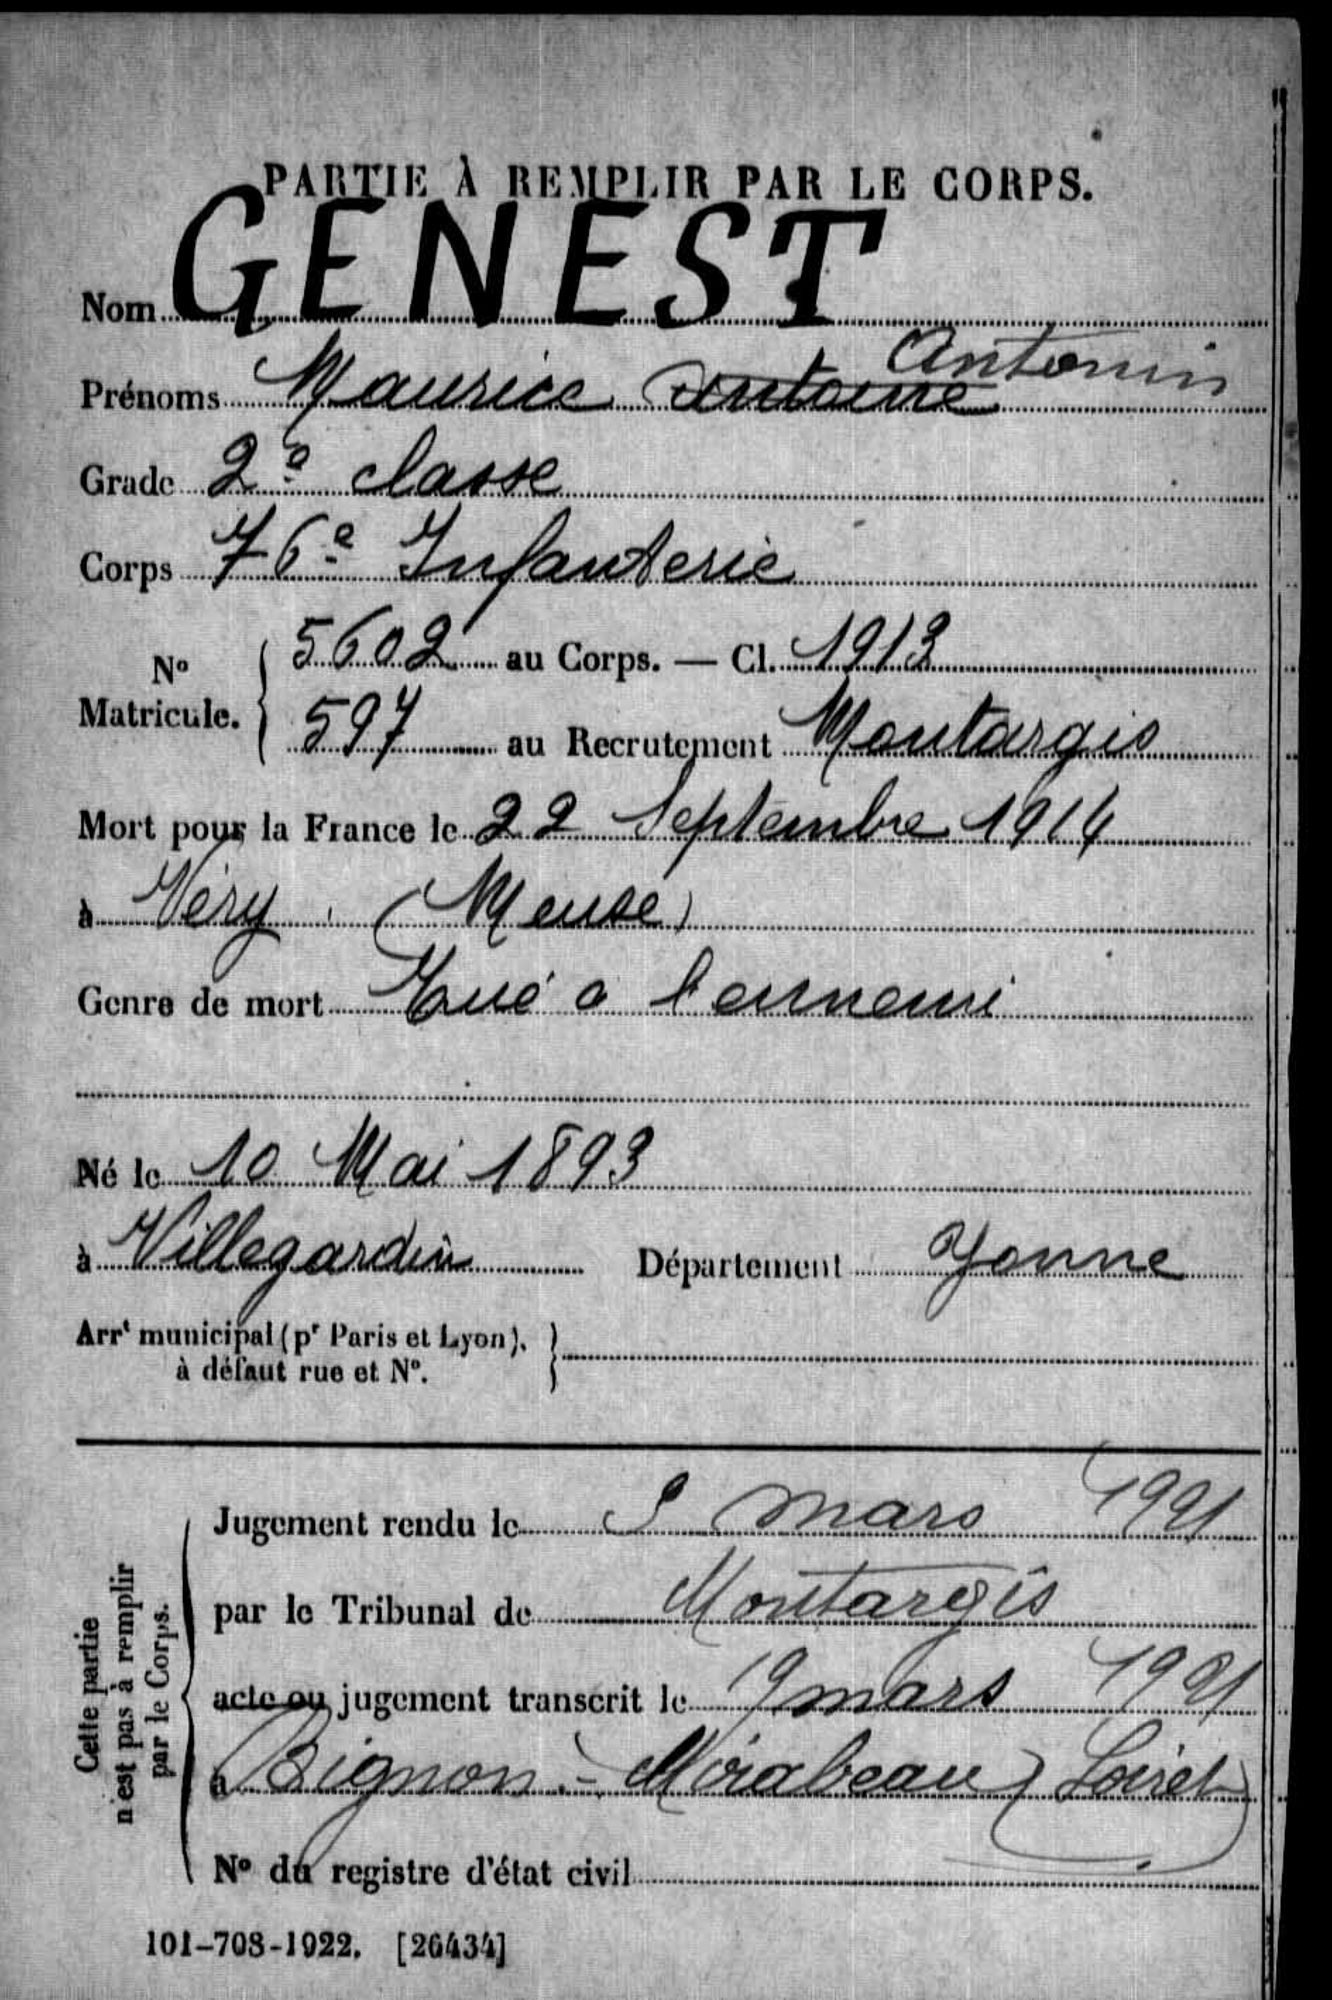 PARTIE À REMPLIR PAR LE CORPS.
Nom GENEST
Antonin
Prénoms Maurice Antoine
Grade 2e classe
Corps 76e Infanterie
No Matricule. 5602 au Corps. — Cl. 1913
597 au Recrutement Montargis
Mort pour la France le 22 Septembre 1914
à Véry (Meuse)
Genre de mort Tué à l'ennemi
Né le 10 Mai 1893
à Villegardin Département Yonne
Arrt municipal (pr Paris et Lyon),
à défaut rue et No.
Cette partie
n'est pas à remplir
par le Corps.
Jugement rendu le mars 1921
par le Tribunal de Montargis
acte ou jugement transcrit le 19 mars 1921
à Bignon-Mirabeau (Loiret)
No du registre d'état civil
101-708-1922. [26434]